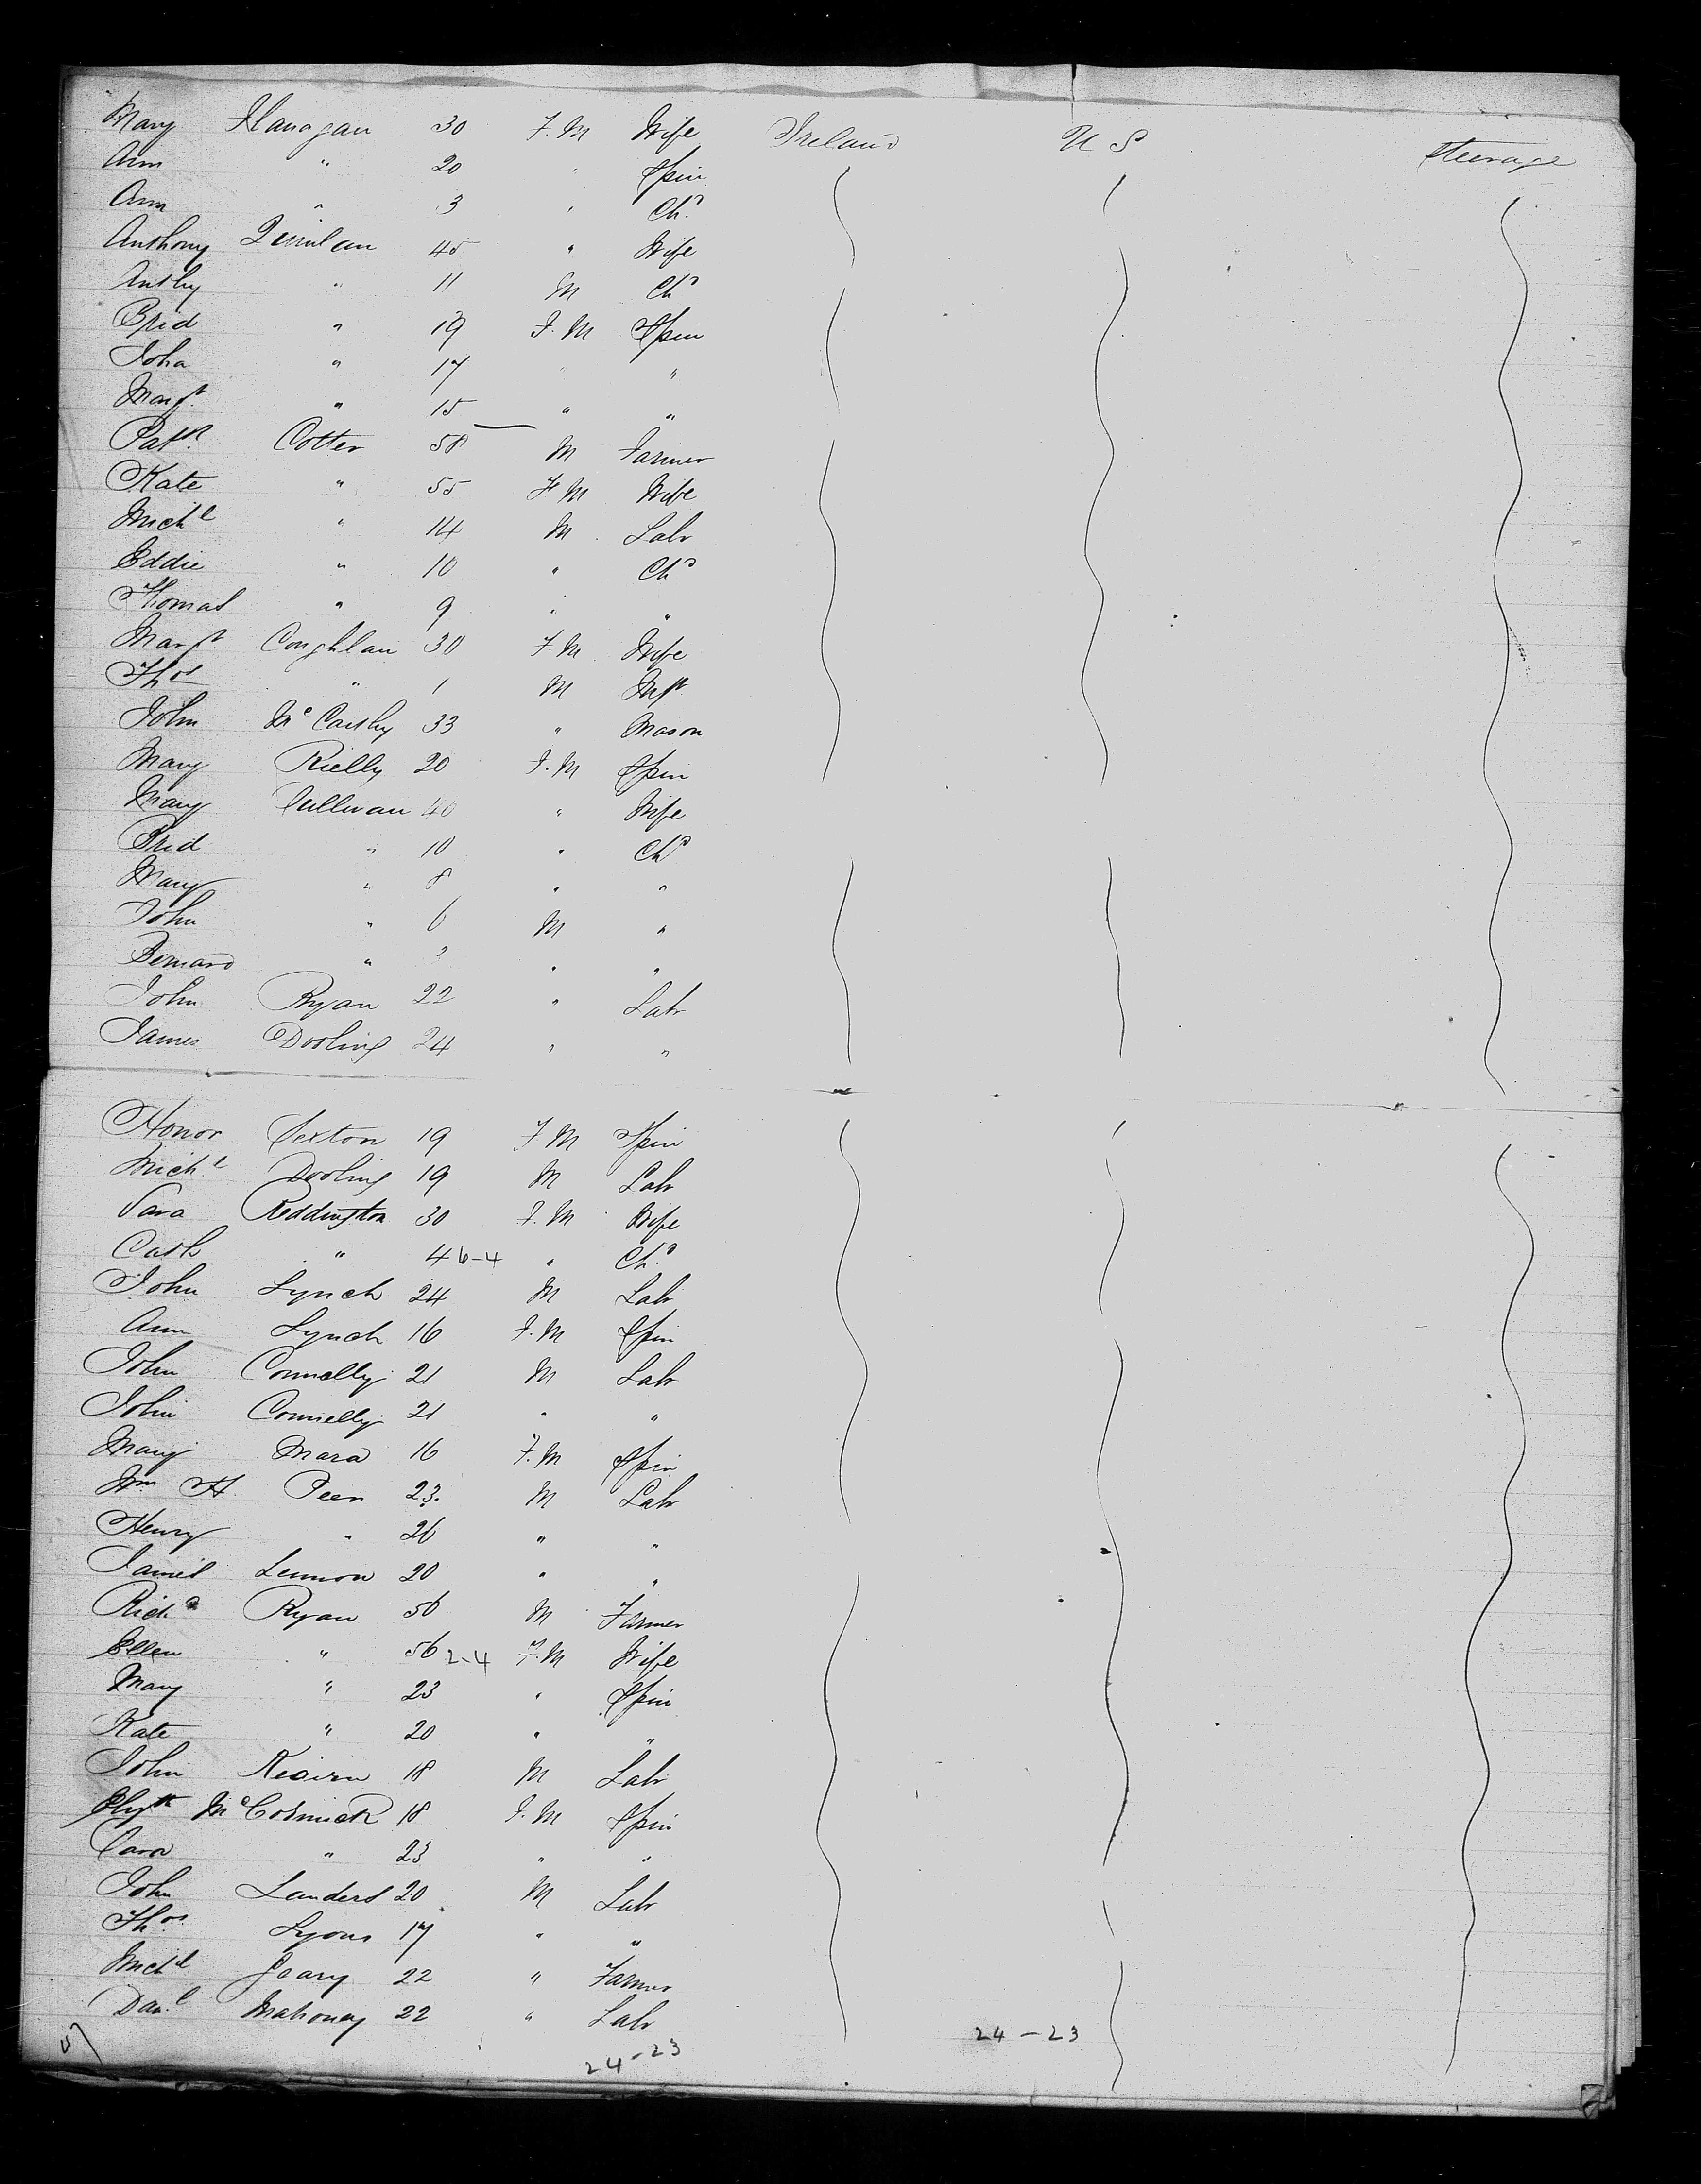 Mary Flanagan 30 F.M Wife Ireland U S Steerage
Ann " 20 " Spin
Ann " 3 " Chd
Anthony Quinlan 45 " Wife
Anthy " 11 M Chd
Brid " 19 F.M Spin
Joha " 17 " "
Margt " 15 " "
Patk Cotter 58 M Farmer
Kate " 55 F M Wife
Michl " 14 M Labr
Eddie " 10 " Chd
Thomas " 9 " "
Margt Coughlan 30 F M Wife
Thos " 1 M Inft
John McCarthy 33 " Mason
Mary Rielly 20 F.M Spin
Mary Sullivan 40 " Wife
Brid " 10 " Chd
Mary " 8 " "
John " 6 M "
Bernard " " "
John Ryan 22 " Labr
James Dooling 24 " "
Honor Sexton 19 F M Spin
Michl Dooling 19 M Labr
Sara Reddington 30 F.M Wife
Cath " 4 6-4 " Chd
John Lynch 24 M Labr
Ann Lynch 16 F.M Spin
John Connelly 21 M Labr
John Connelly 21 " "
Mary Mara 16 F.M Spin
Wm H. Peer 23 M Labr
Henry " 26 " "
James Lennon 20 " "
Richd Ryan 56 M Farmer
Ellen " 56 2-4 F.M Wife
Mary " 23 " Spin
Kate " 20 " "
John 18 M Labr
McCormick 18 F.M Spin
Sara " 23 " "
John Landers 20 M Labr
Thos Lyons 17 " "
Michl Geary 22 " Farmer
Danl Mahoney 22 " Labr
24-23 24-23